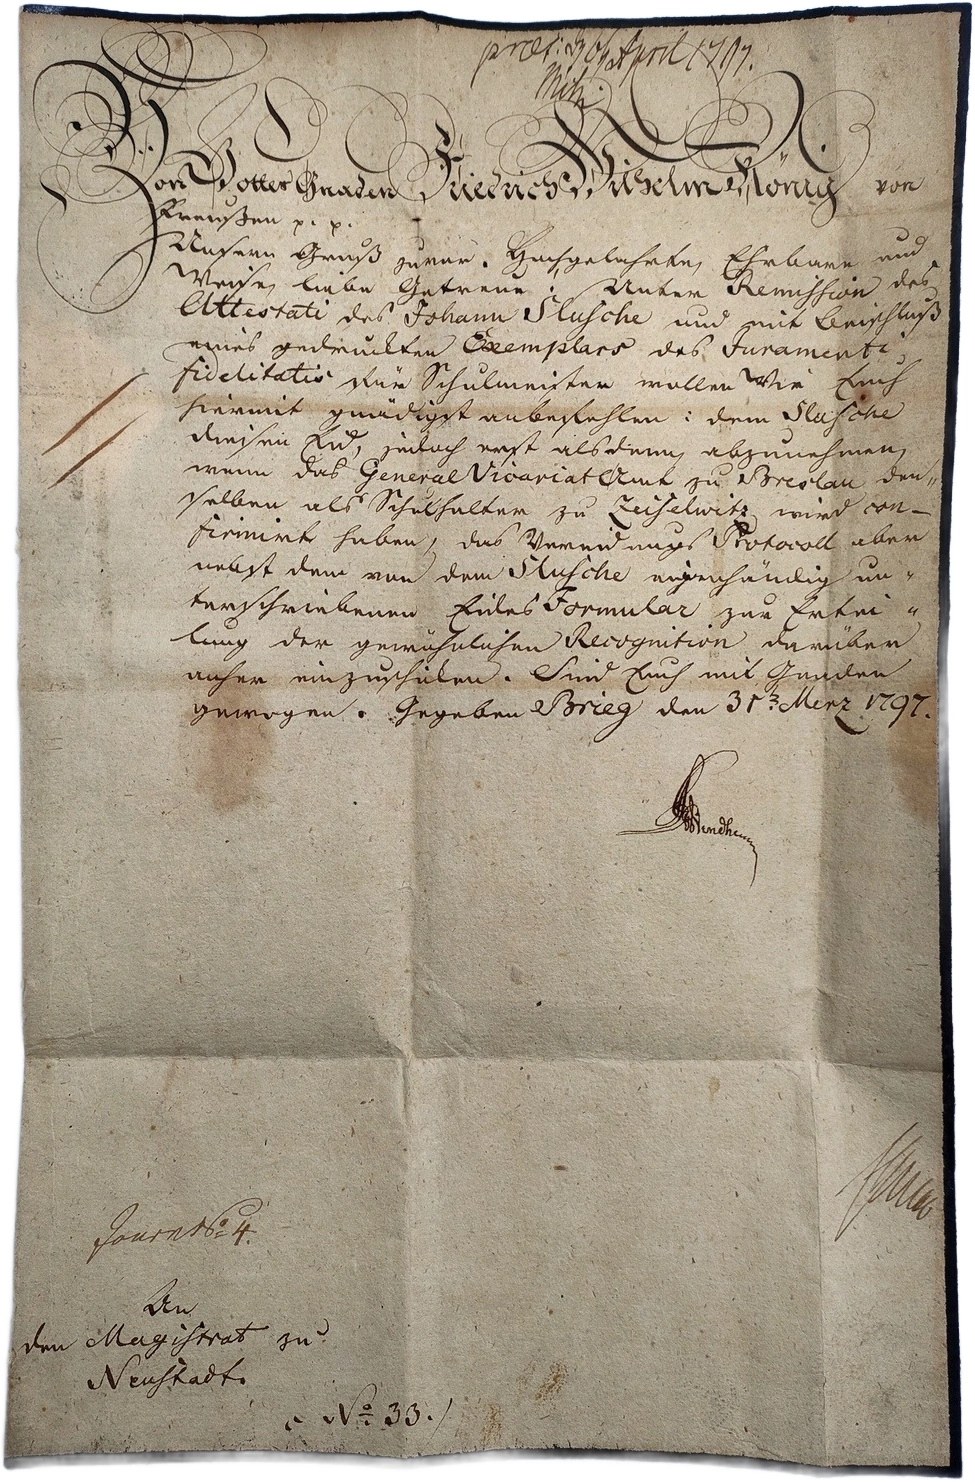 præs: d 6 April 1797.
Von Gottes Gnaden Friedrich Wilhelm König von
Preußen p. p.
Unsern Gruß zuvor. Hochgelahrte, Ehrbare und
Weise, liebe Getreue! Unter Remission des
Attestati des Johann Slusche und mit Beischluß
eines gedruckten Exemplars des Juramenti
fidelitatis für Schulmeister wollen Wir Euch
hiermit gnädigst anbefehlen: dem Slusche
diesen Eid, jedoch erst alsdenn, abzunehmen,
wenn das General Vicariat Amt zu Breslau den„
selben als Schulhalter zu Zeiselwitz wird con–
firmirt haben, das Vereidungs Protocoll aber
nebst dem von dem Slusche eigenhändig un„
terschriebenen Eides Formular zur Ertei„
lung der gewöhnlichen Recognition darüber
anher einzuschiken. Sind Euch mit Gnaden
gewogen. Gegeben Brieg den 31t Merz 1797.
Journ No 4.
An
den Magistrat zu
Neustadt.
No 33.